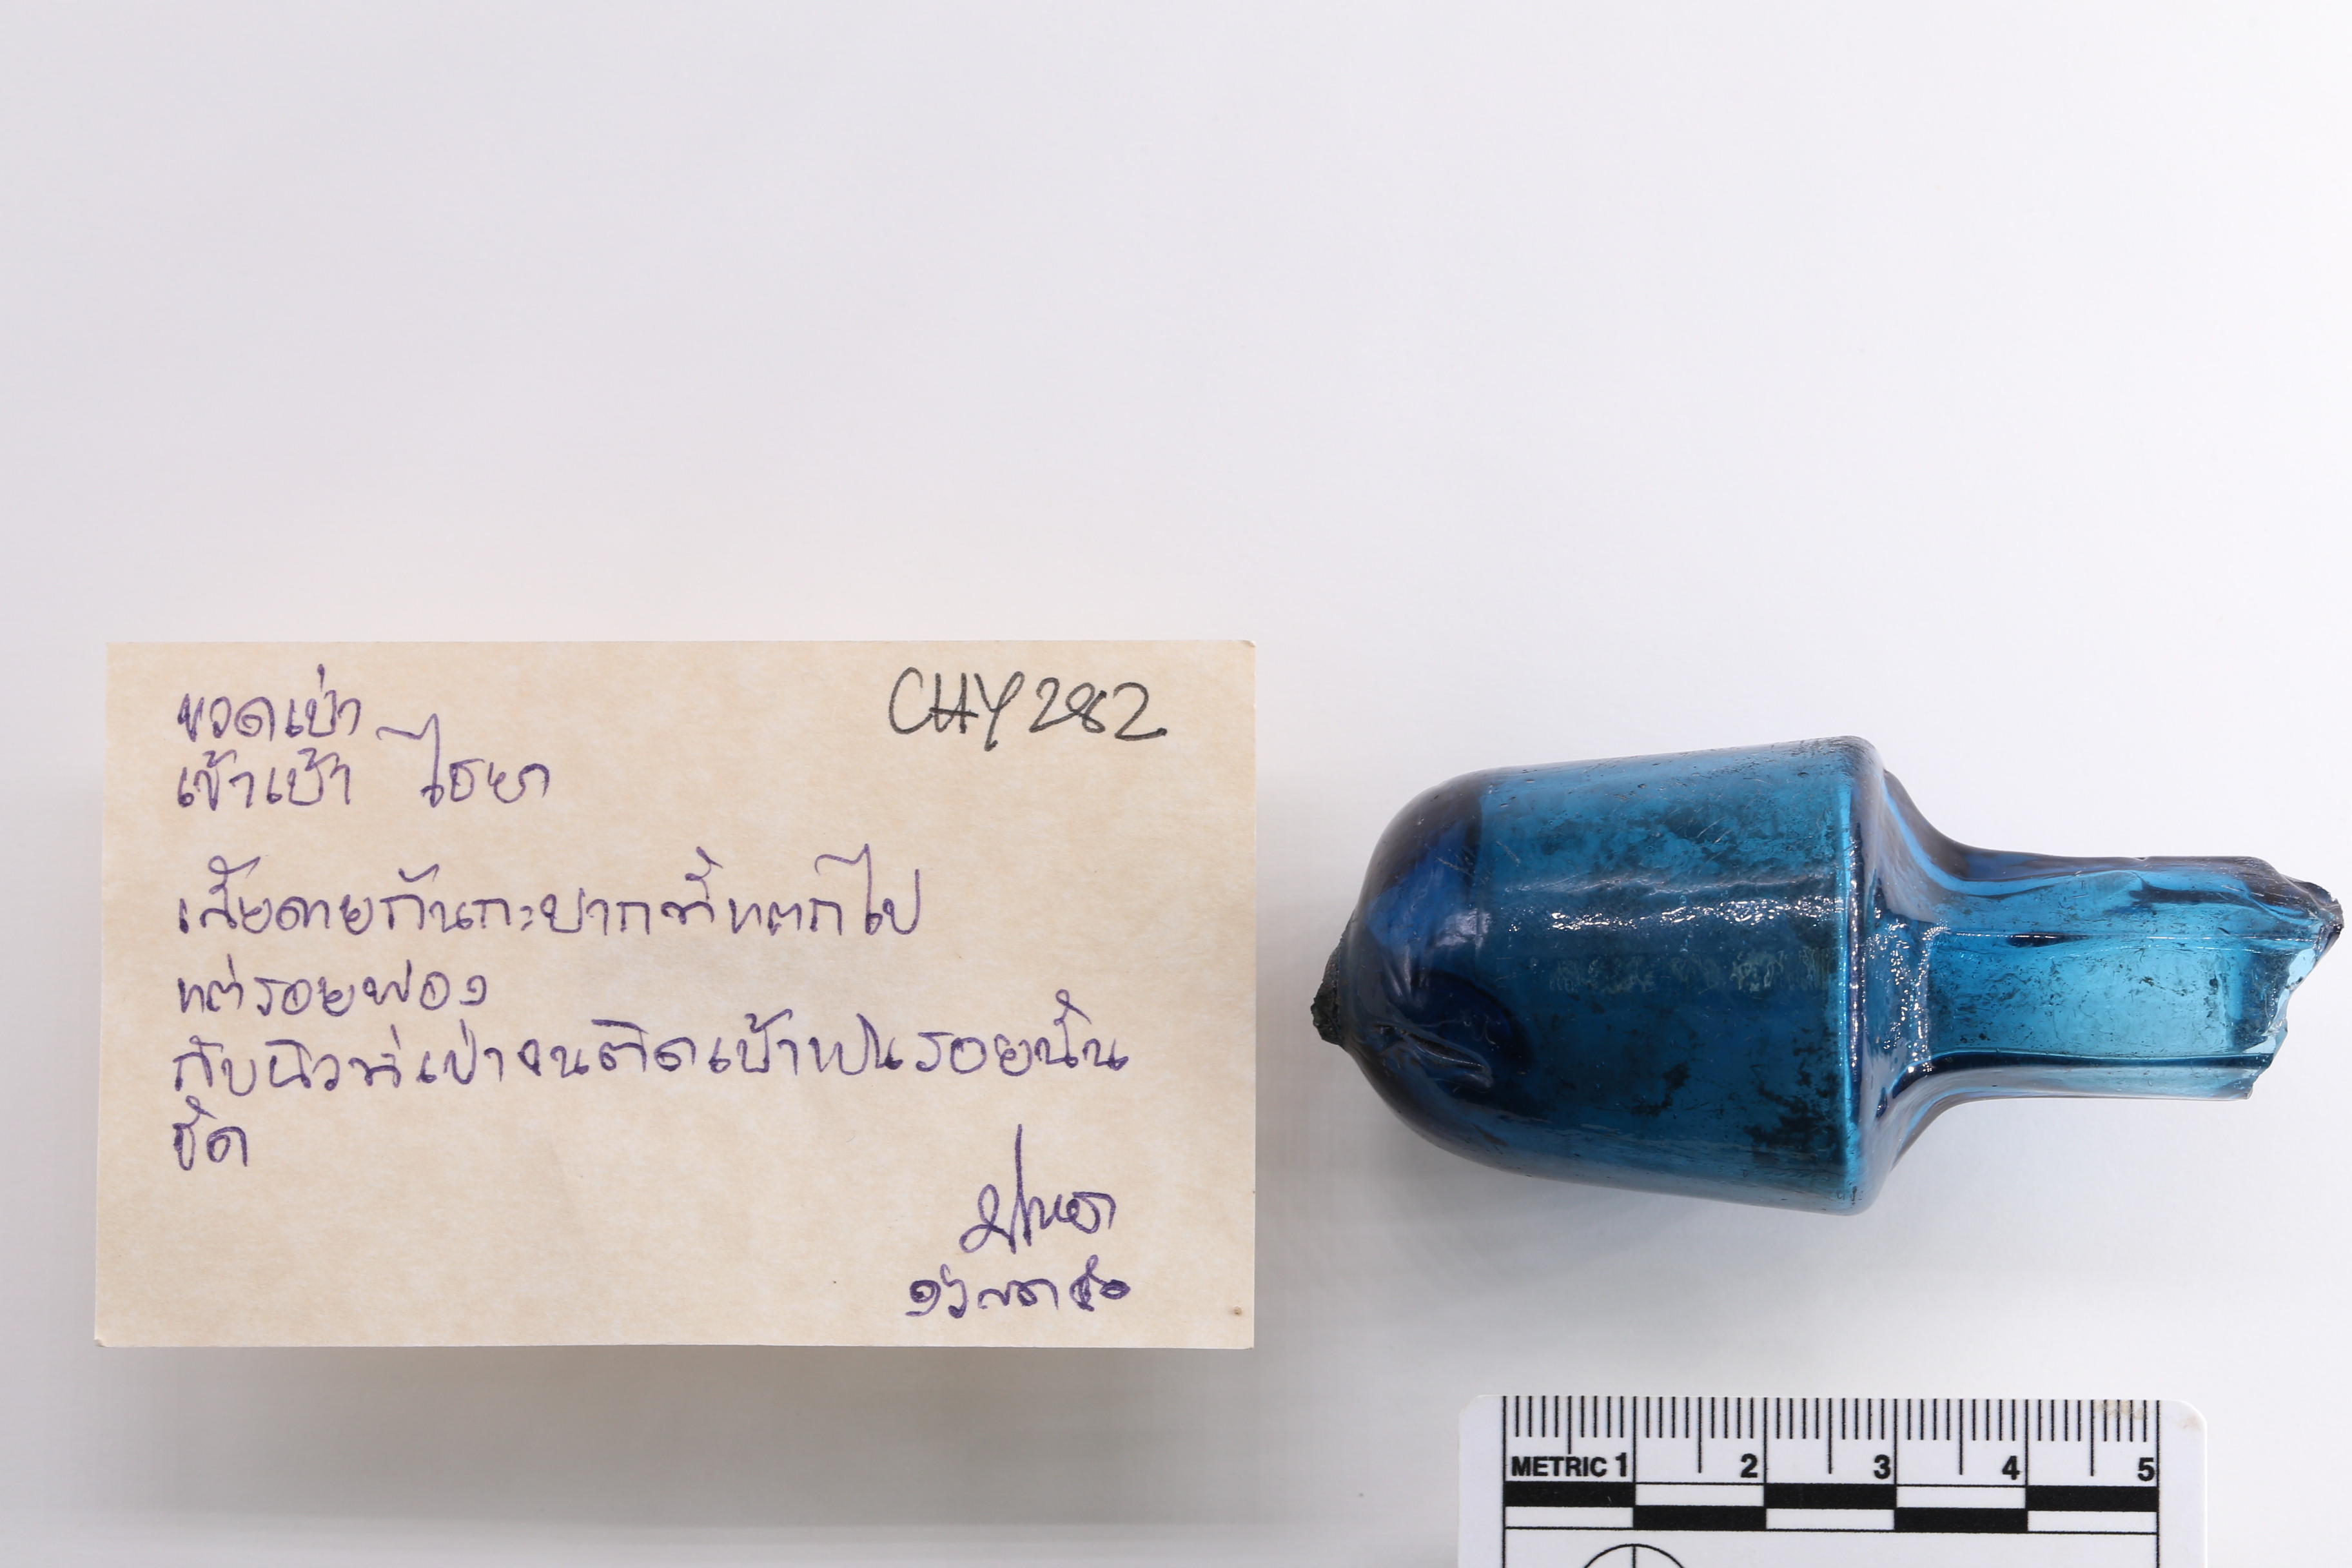 ขวดเป่า
CHY 282
เข้าเบ้า ไชยา
เสียดายก้นกะปากที่แตกไป
แต่รอยฟอง
กับผิวที่เป่าจนติดเบ้าเป็นรอยนั้น
ชัด
METRIC 1 2 3 4 5